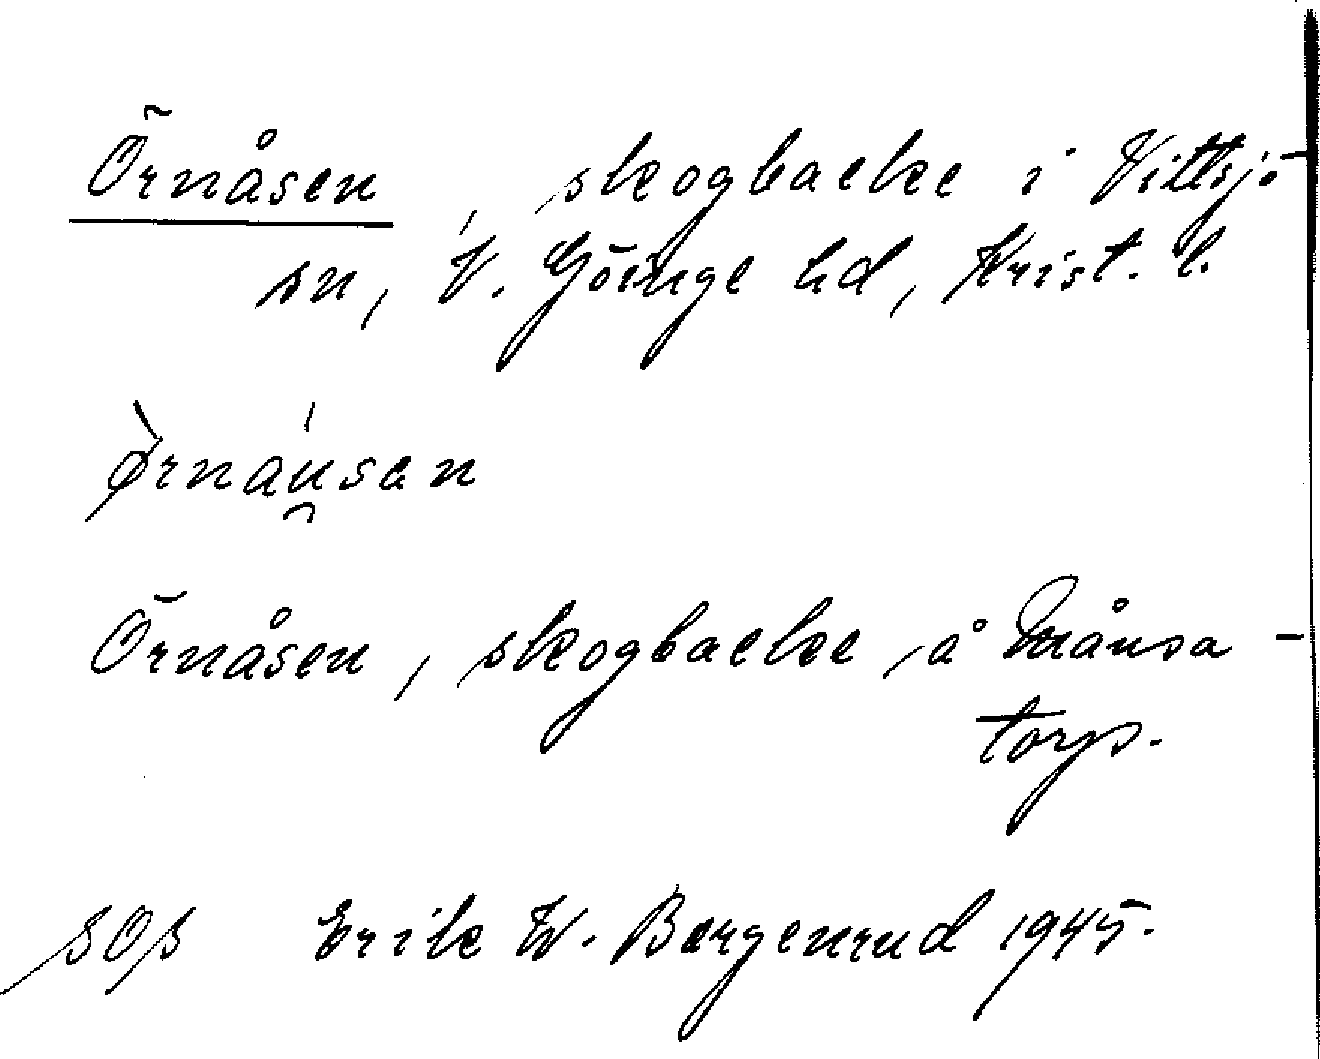 Örnåsen, skogbacke i Vittsjö
sn, V. Göinge hd, Krist. l.
Ørnáu̯san
Örnåsen, skogbacke, å Månsa-
torp.
SOS Erik W. Bergenrud 1945.